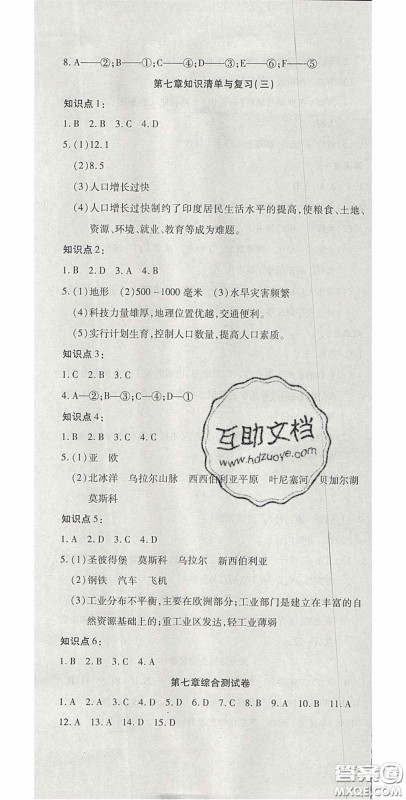 8. A——②;B——①;C——④;D——③;E——⑥;F——⑤
第七章知识清单与复习(三)
知识点1:
1. B  2. B  3. C  4. D
5. (1)12.1
(2)8.5
(3)人口增长过快
(4)人口增长过快制约了印度居民生活水平的提高,使粮食、土地、
资源、环境、就业、教育等成为难题。
知识点2:
1. B  2. D  3. A  4. A
5. (1)地形  (2)500-1000毫米  (3)水旱灾害频繁
(4)科技力量雄厚,地理位置优越,交通便利。
(5)实行计划生育,控制人口数量,提高人口素质。
知识点3:
1. C  2. B  3. C
4. A—②;B—③;C—④;D—①
知识点4:
1. C  2. B  3. B  4. C
5. (1)亚  欧
(2)北冰洋  乌拉尔山脉  西西伯利亚平原  叶尼塞河  贝加尔湖
莫斯科
知识点5:
1. A  2. D  3. C  4. A
5. (1)圣彼得堡  莫斯科  乌拉尔  新西伯利亚
(2)钢铁  汽车  飞机
(3)工业分布不平衡,主要在欧洲部分;工业部门是建立在丰富的自
然资源基础上的;重工业区发达,轻工业薄弱
知识点6:
1. C  2. B  3. C  4. A
第七章综合测试卷
1. A  2. A  3. C  4. A  5. D  6. B  7. C  8. D  9. D  10. C  11. A
12. A  13. D  14. A  15. D
互助文档
www.hdzuoye.com
答案圈
MXQE.COM